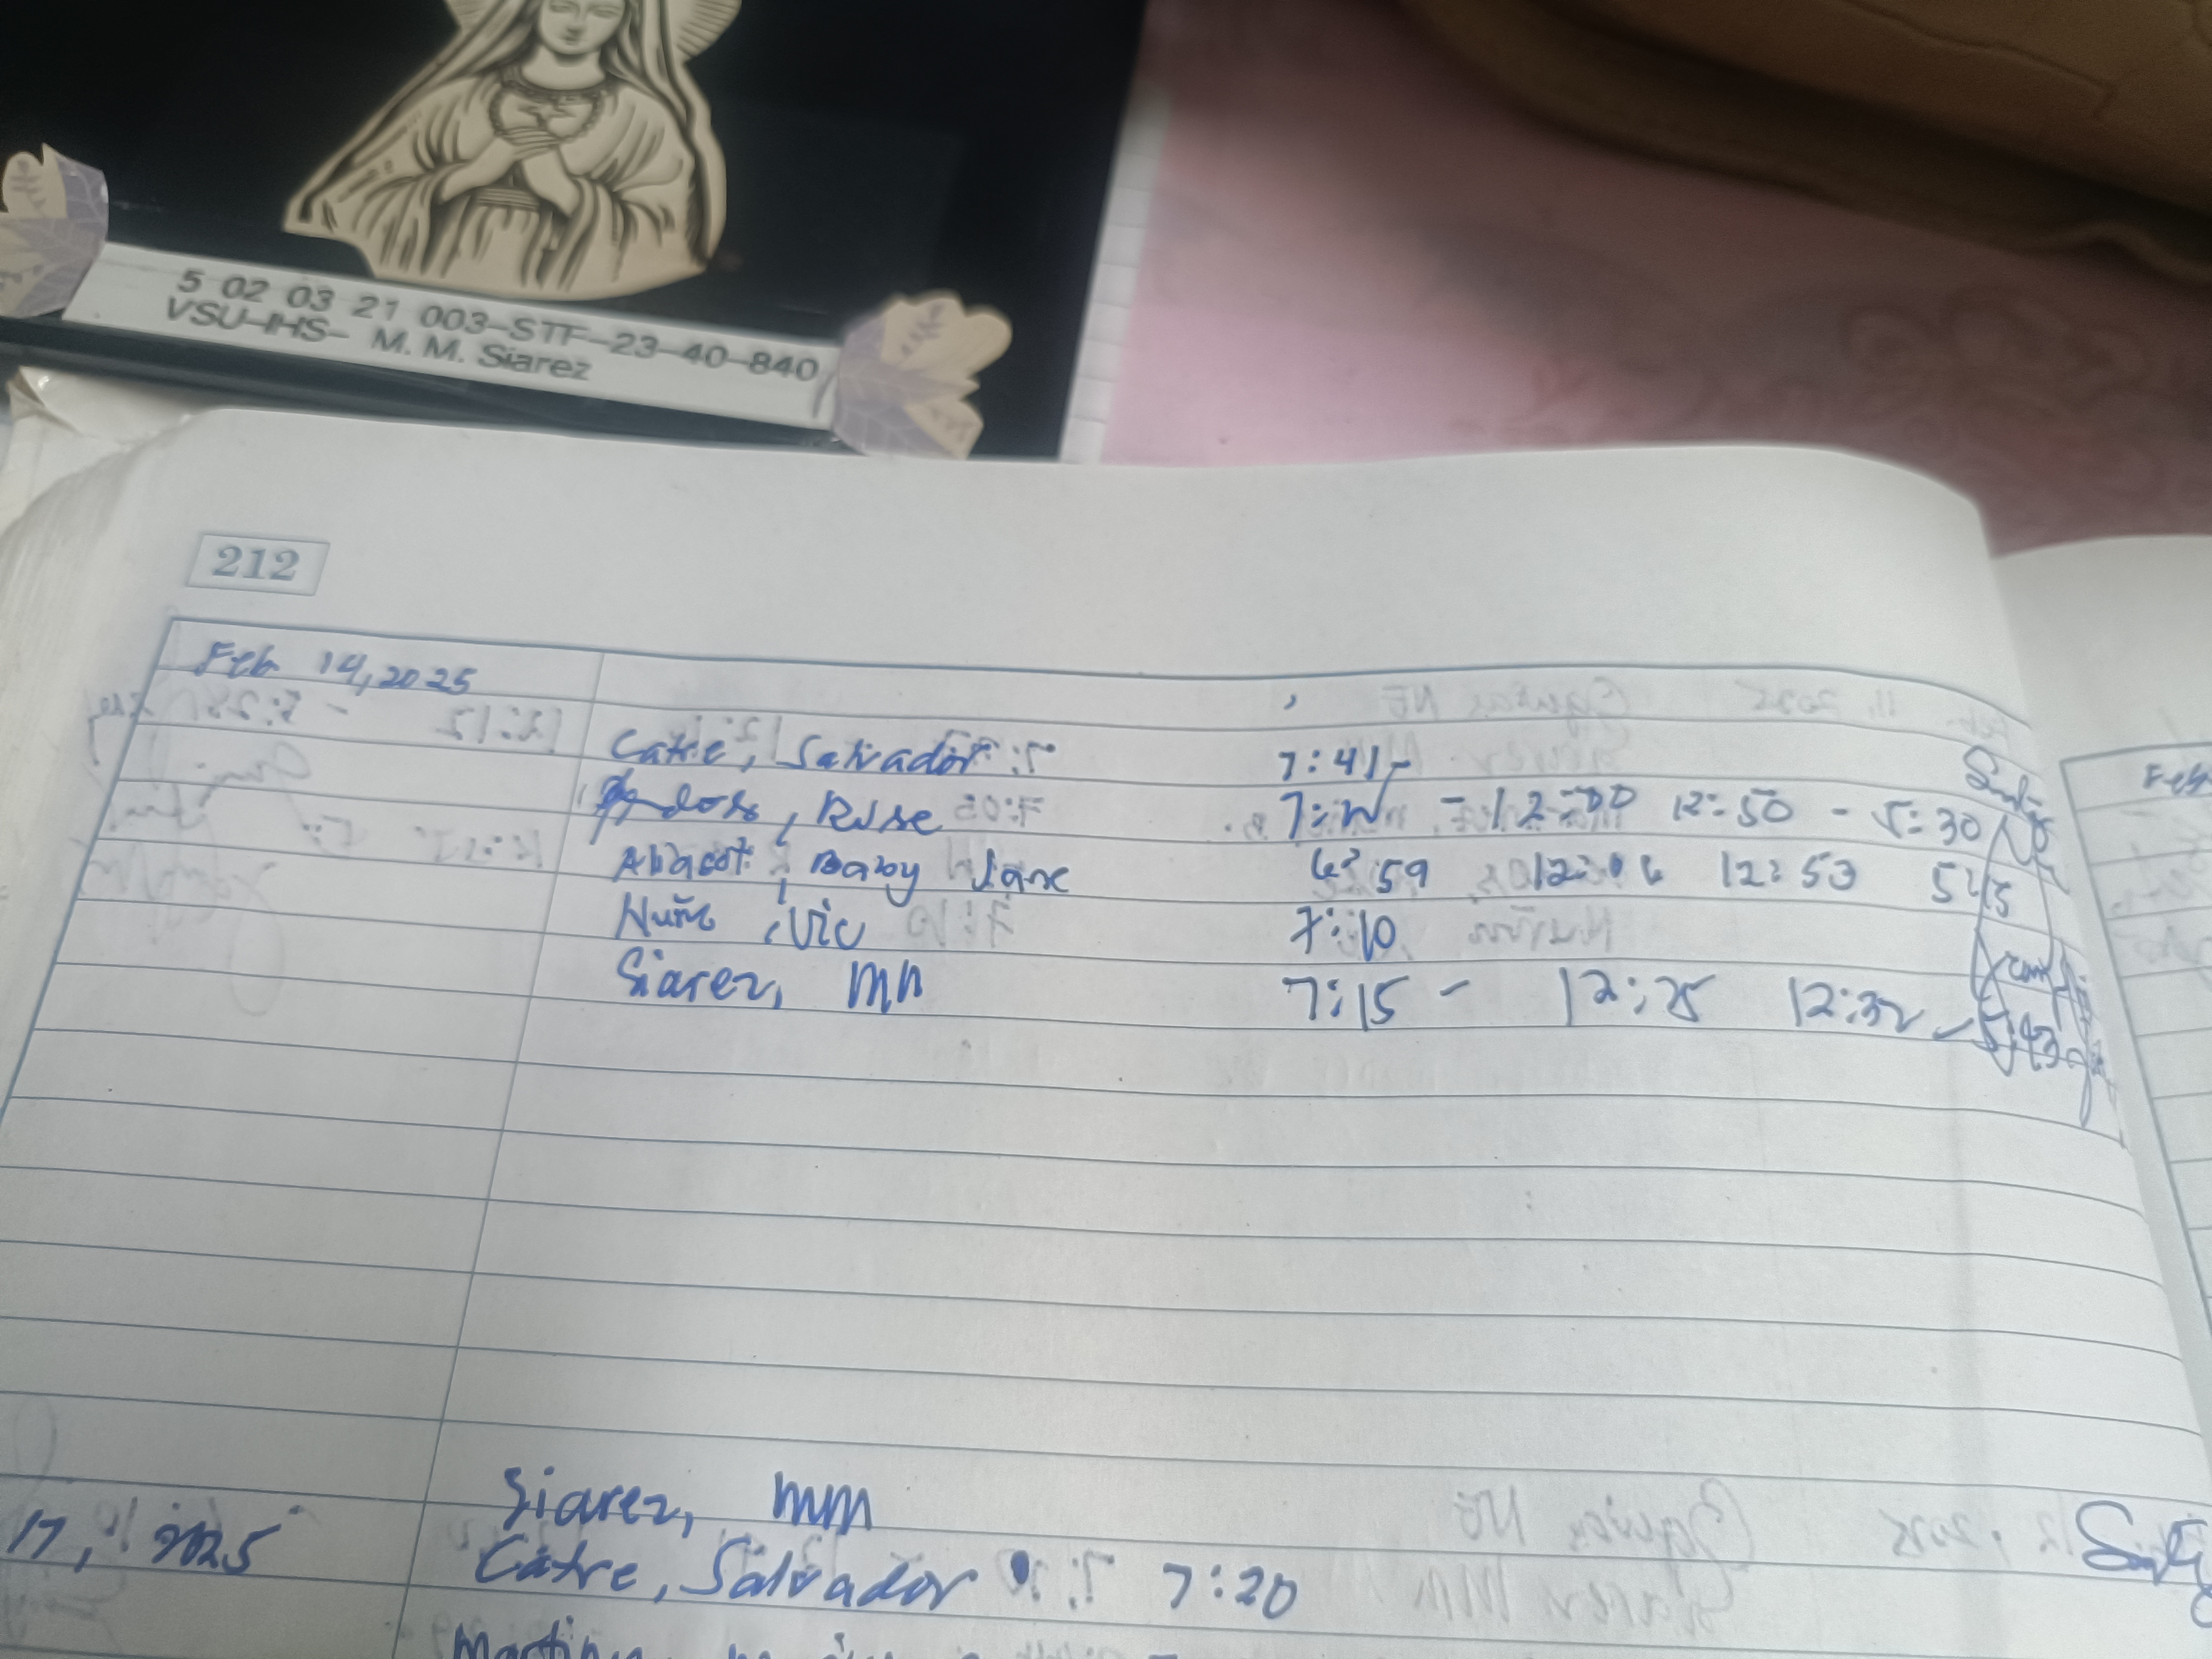 5 02 03 21 003-STF-23-40-840
VSU-IHS- M. M. Siarez
212
Feb 14, 2025
Catre, Salvador 7:41-
Rose - 12:00 12:50 - 5:30
Abacot, Baby Jane 6:59 12:06 12:53
, Vic 7:10
Siarez, MM 7:15 - 12:25 12:32 - 5:43
Siarez, MM
17, 2025 Catre, Salvador 7:20